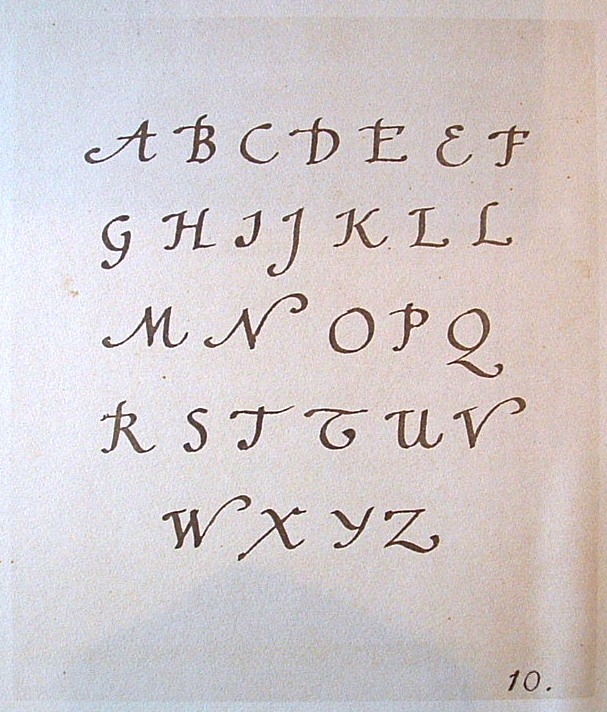 A B C D E E F
G H I J K L L
M N O P Q
R S T T U V
W X Y Z
10.